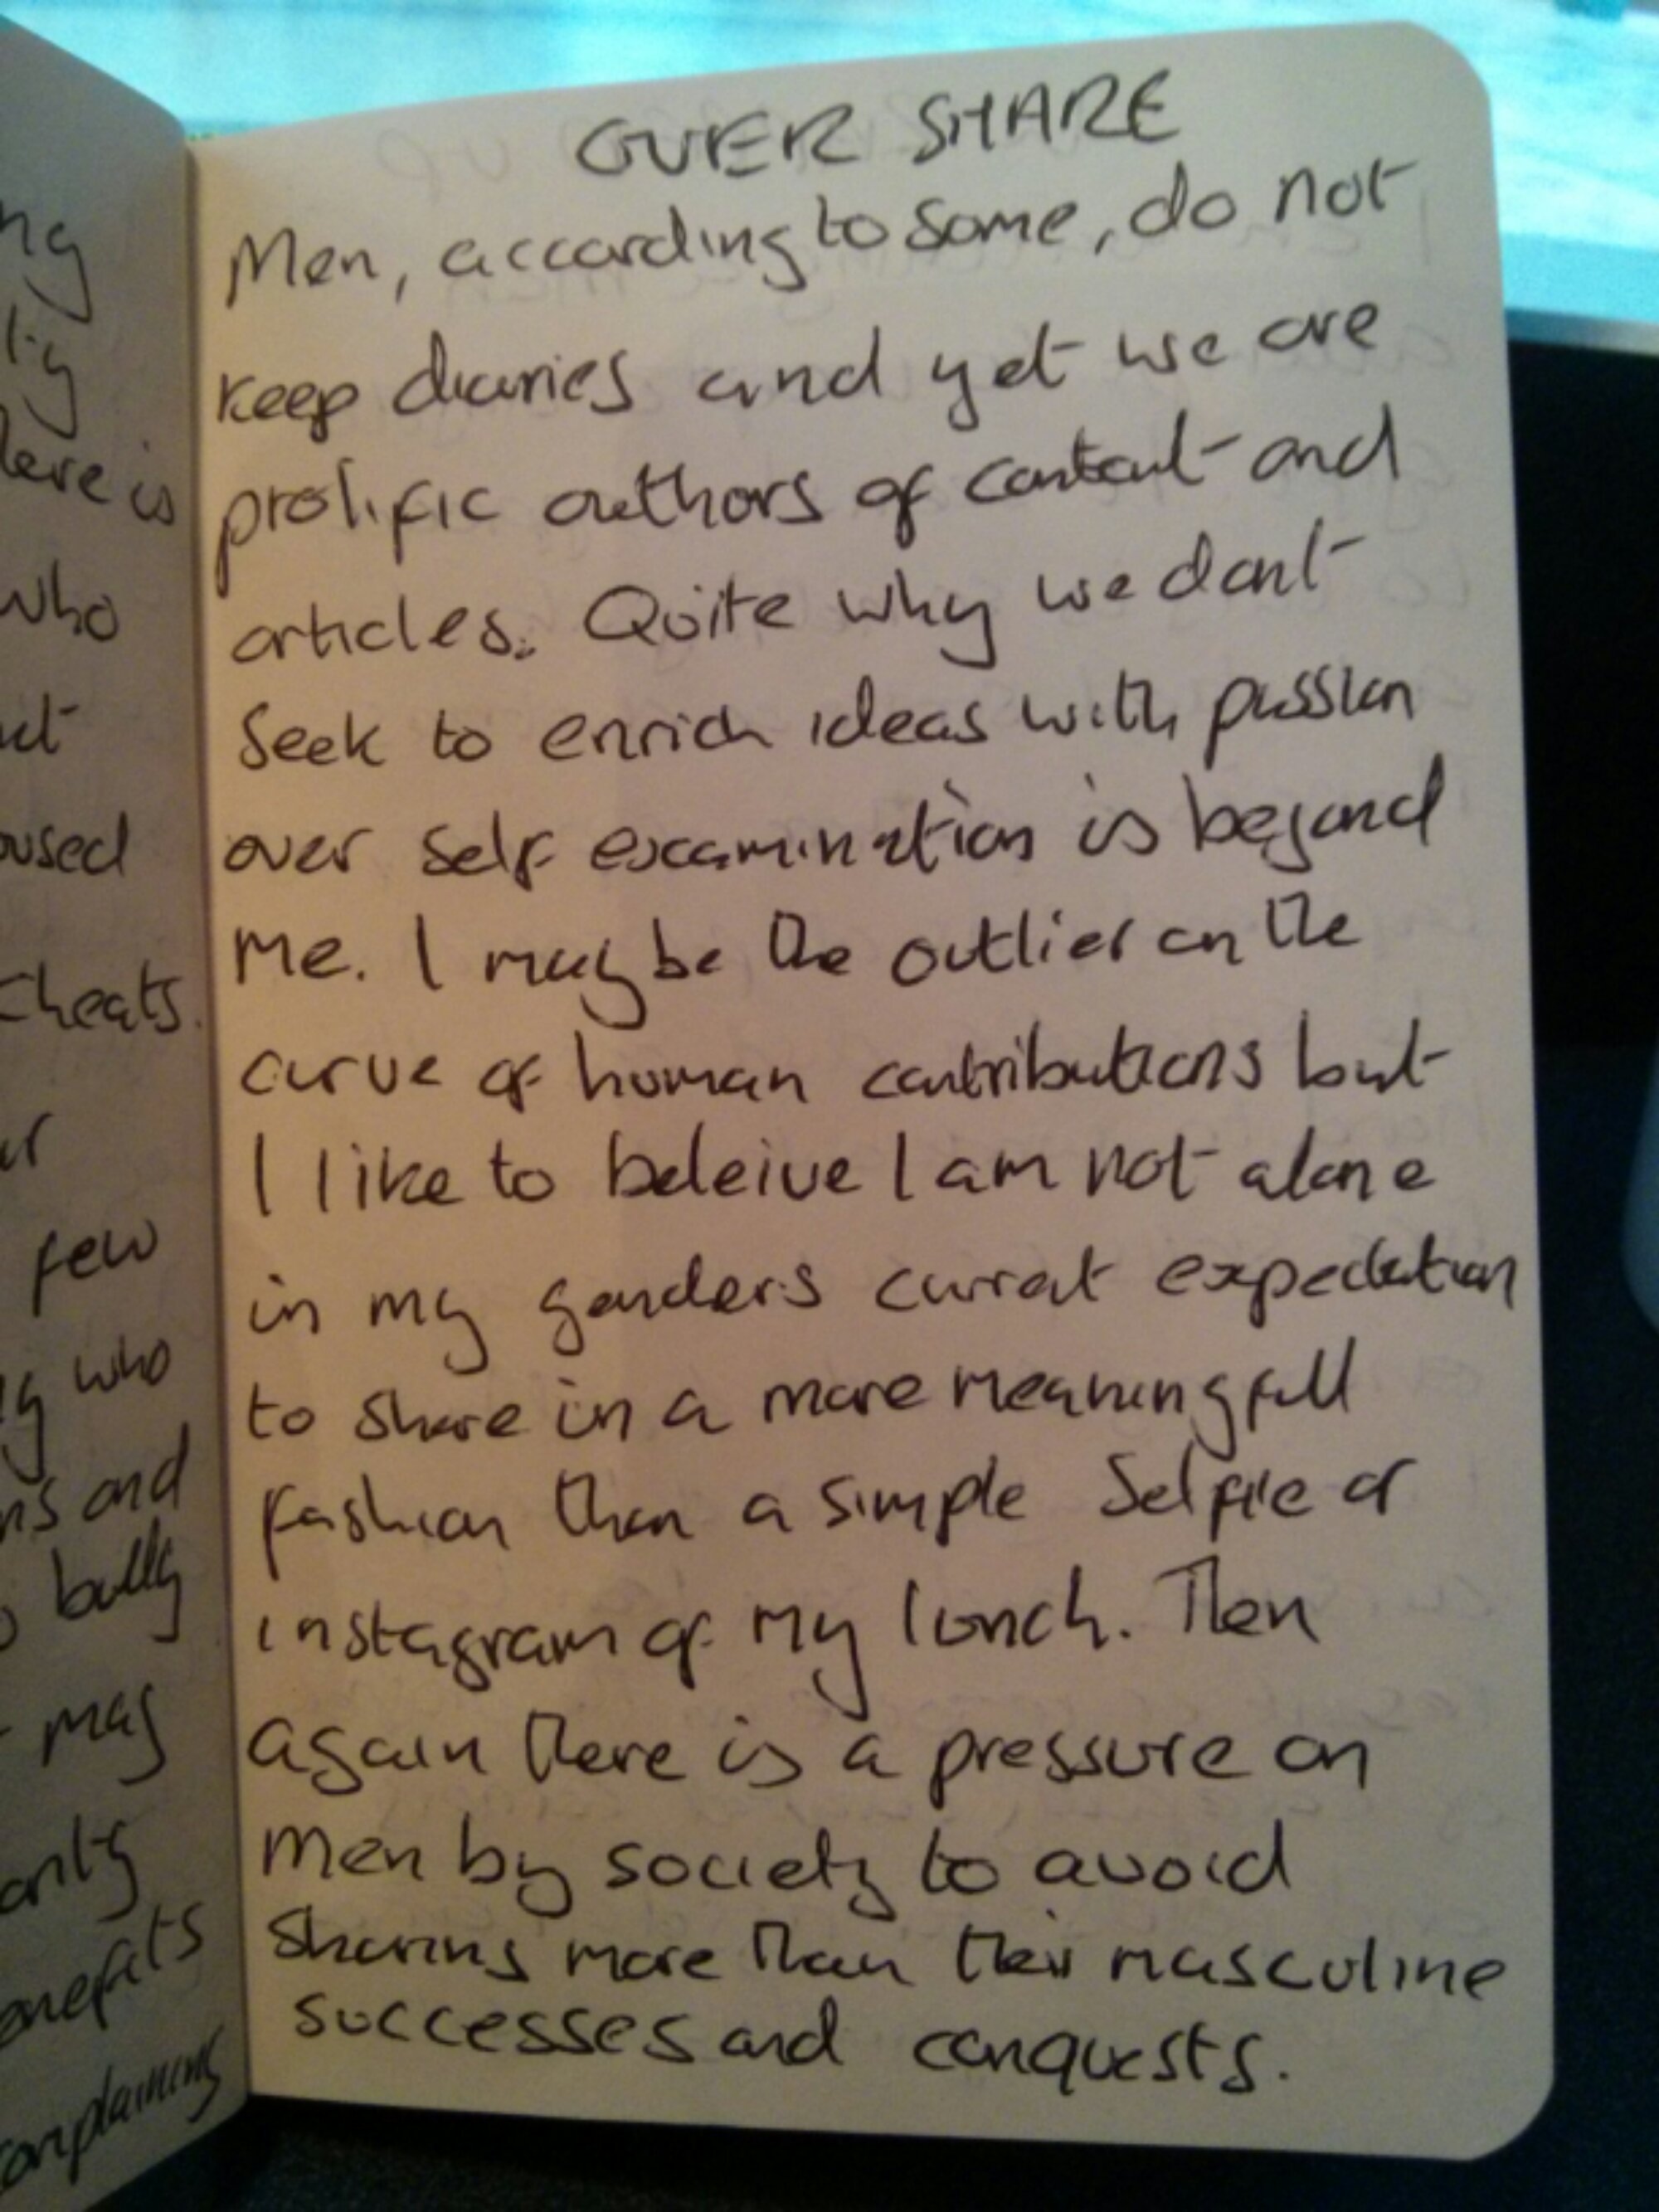 ng
ly
here is
who
oused
cheats.
few
who
ns and
bully
may
only
benefits
complaining
OVER SHARE
Men, according to some, do not
keep diaries and yet we are
prolific authors of content and
articles. Quite why we dont
seek to enrich ideas with passion
over self examination is beyond
me. I may be the outlier on the
curve of human contributions but
I like to beleive I am not alone
in my genders current expectation
to share in a more meaningfull
fashion than a simple selfie or
instagram of my lunch. Then
again there is a pressure on
men by society to avoid
sharing more than their masculine
successes and conquests.